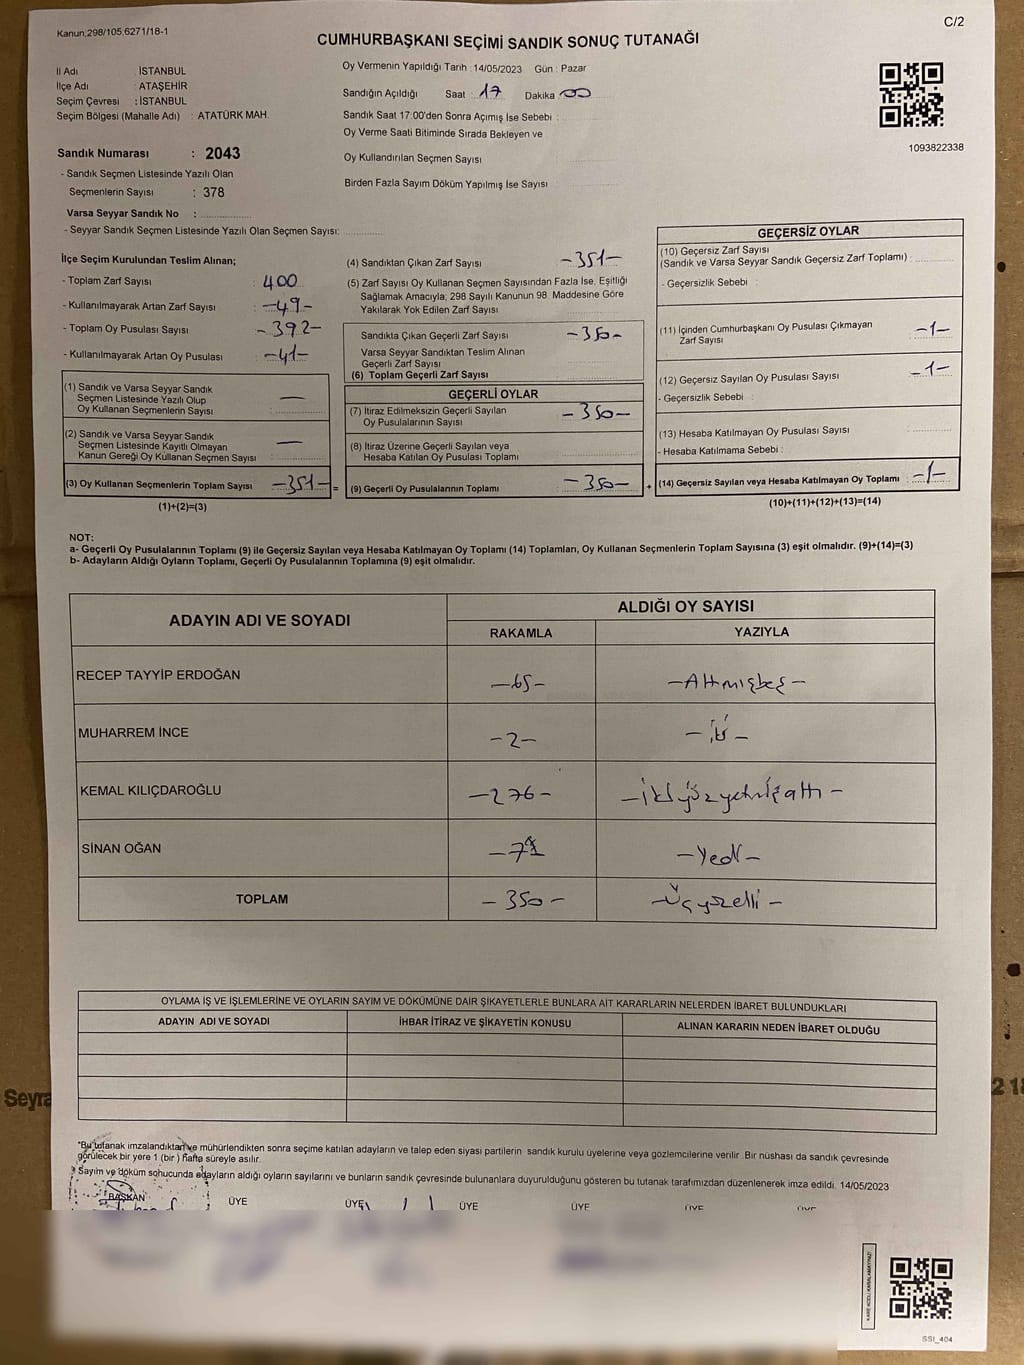 Kanun;298/105,6271/18-1
C/2
CUMHURBAŞKANI SEÇİMİ SANDIK SONUÇ TUTANAĞI
İl Adı İSTANBUL
İlçe Adı : ATAŞEHİR
Seçim Çevresi : İSTANBUL
Seçim Bölgesi (Mahalle Adı) : ATATÜRK MAH.
Oy Vermenin Yapıldığı Tarih : 14/05/2023 Gün : Pazar
Sandığın Açıldığı Saat : 17 Dakika 00
Sandık Saat 17:00'den Sonra Açımış İse Sebebi :
Oy Verme Saati Bitiminde Sırada Bekleyen ve
Oy Kullandırılan Seçmen Sayısı
Birden Fazla Sayım Döküm Yapılmış İse Sayısı
1093822338
Sandık Numarası : 2043
- Sandık Seçmen Listesinde Yazılı Olan
Seçmenlerin Sayısı : 378
Varsa Seyyar Sandık No :
- Seyyar Sandık Seçmen Listesinde Yazılı Olan Seçmen Sayısı:
İlçe Seçim Kurulundan Teslim Alınan;
- Toplam Zarf Sayısı : 400
- Kullanılmayarak Artan Zarf Sayısı : -49-
- Toplam Oy Pusulası Sayısı : -392-
- Kullanılmayarak Artan Oy Pusulası : -41-
(1) Sandık ve Varsa Seyyar Sandık
Seçmen Listesinde Yazılı Olup
Oy Kullanan Seçmenlerin Sayısı : —
(2) Sandık ve Varsa Seyyar Sandık
Seçmen Listesinde Kayıtlı Olmayan
Kanun Gereği Oy Kullanan Seçmen Sayısı : —
(3) Oy Kullanan Seçmenlerin Toplam Sayısı -351- =
(1)+(2)=(3)
(4) Sandıktan Çıkan Zarf Sayısı -351-
(5) Zarf Sayısı Oy Kullanan Seçmen Sayısından Fazla İse, Eşitliği
Sağlamak Amacıyla, 298 Sayılı Kanunun 98. Maddesine Göre
Yakılarak Yok Edilen Zarf Sayısı
Sandıkta Çıkan Geçerli Zarf Sayısı -350-
Varsa Seyyar Sandıktan Teslim Alınan
Geçerli Zarf Sayısı
(6) Toplam Geçerli Zarf Sayısı
GEÇERLİ OYLAR
(7) İtiraz Edilmeksizin Geçerli Sayılan
Oy Pusulalarının Sayısı -350-
(8) İtiraz Üzerine Geçerli Sayılan veya
Hesaba Katılan Oy Pusulası Toplamı
(9) Geçerli Oy Pusulalarının Toplamı -350- +
GEÇERSİZ OYLAR
(10) Geçersiz Zarf Sayısı
(Sandık ve Varsa Seyyar Sandık Geçersiz Zarf Toplamı) :
- Geçersizlik Sebebi :
(11) İçinden Cumhurbaşkanı Oy Pusulası Çıkmayan
Zarf Sayısı -1-
(12) Geçersiz Sayılan Oy Pusulası Sayısı -1-
- Geçersizlik Sebebi :
(13) Hesaba Katılmayan Oy Pusulası Sayısı
- Hesaba Katılmama Sebebi :
(14) Geçersiz Sayılan veya Hesaba Katılmayan Oy Toplamı : -1-
(10)+(11)+(12)+(13)=(14)
NOT:
a- Geçerli Oy Pusulalarının Toplamı (9) ile Geçersiz Sayılan veya Hesaba Katılmayan Oy Toplamı (14) Toplamları, Oy Kullanan Seçmenlerin Toplam Sayısına (3) eşit olmalıdır. (9)+(14)=(3)
b- Adayların Aldığı Oyların Toplamı, Geçerli Oy Pusulalarının Toplamına (9) eşit olmalıdır.
ADAYIN ADI VE SOYADI
ALDIĞI OY SAYISI
RAKAMLA YAZIYLA
RECEP TAYYİP ERDOĞAN -65- -Altmışbeş-
MUHARREM İNCE -2- -iki-
KEMAL KILIÇDAROĞLU -276- -ikiyüzyetmişaltı-
SİNAN OĞAN -7 -Yedi-
TOPLAM -350- -Üçyüzelli-
OYLAMA İŞ VE İŞLEMLERİNE VE OYLARIN SAYIM VE DÖKÜMÜNE DAİR ŞİKAYETLERLE BUNLARA AİT KARARLARIN NELERDEN İBARET BULUNDUKLARI
ADAYIN ADI VE SOYADI İHBAR İTİRAZ VE ŞİKAYETİN KONUSU ALINAN KARARIN NEDEN İBARET OLDUĞU
Seyra
2 18
*Bu tutanak imzalandıktan ve mühürlendikten sonra seçime katılan adayların ve talep eden siyasi partilerin sandık kurulu üyelerine veya gözlemcilerine verilir. Bir nüshası da sandık çevresinde
görülecek bir yere 1 (bir) hafta süreyle asılır.
* Sayım ve döküm sonucunda adayların aldığı oyların sayılarını ve bunların sandık çevresinde bulunanlara duyurulduğunu gösteren bu tutanak tarafımızdan düzenlenerek imza edildi. 14/05/2023
BAŞKAN ÜYE ÜYE ÜYE ÜYE ÜYE ÜYE
KARE KODU KARALAMAYINIZ!
SSI_404